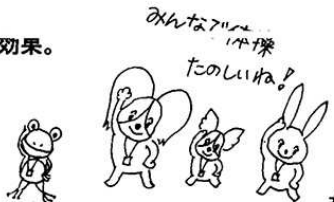 効果。
みんなで体操
たのしいね!